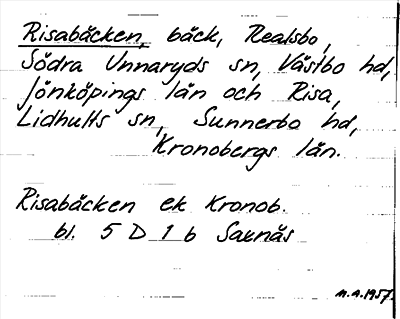 Risabäcken, bäck, Realsbo,
Södra Unnaryds sn, Västbo hd,
Jönköpings län och Risa,
Lidhults sn, Sunnerbo hd,
Kronobergs län.
Risabäcken ek Kronob.
bl. 5 D 1 b Saknäs
M.A. 1957.